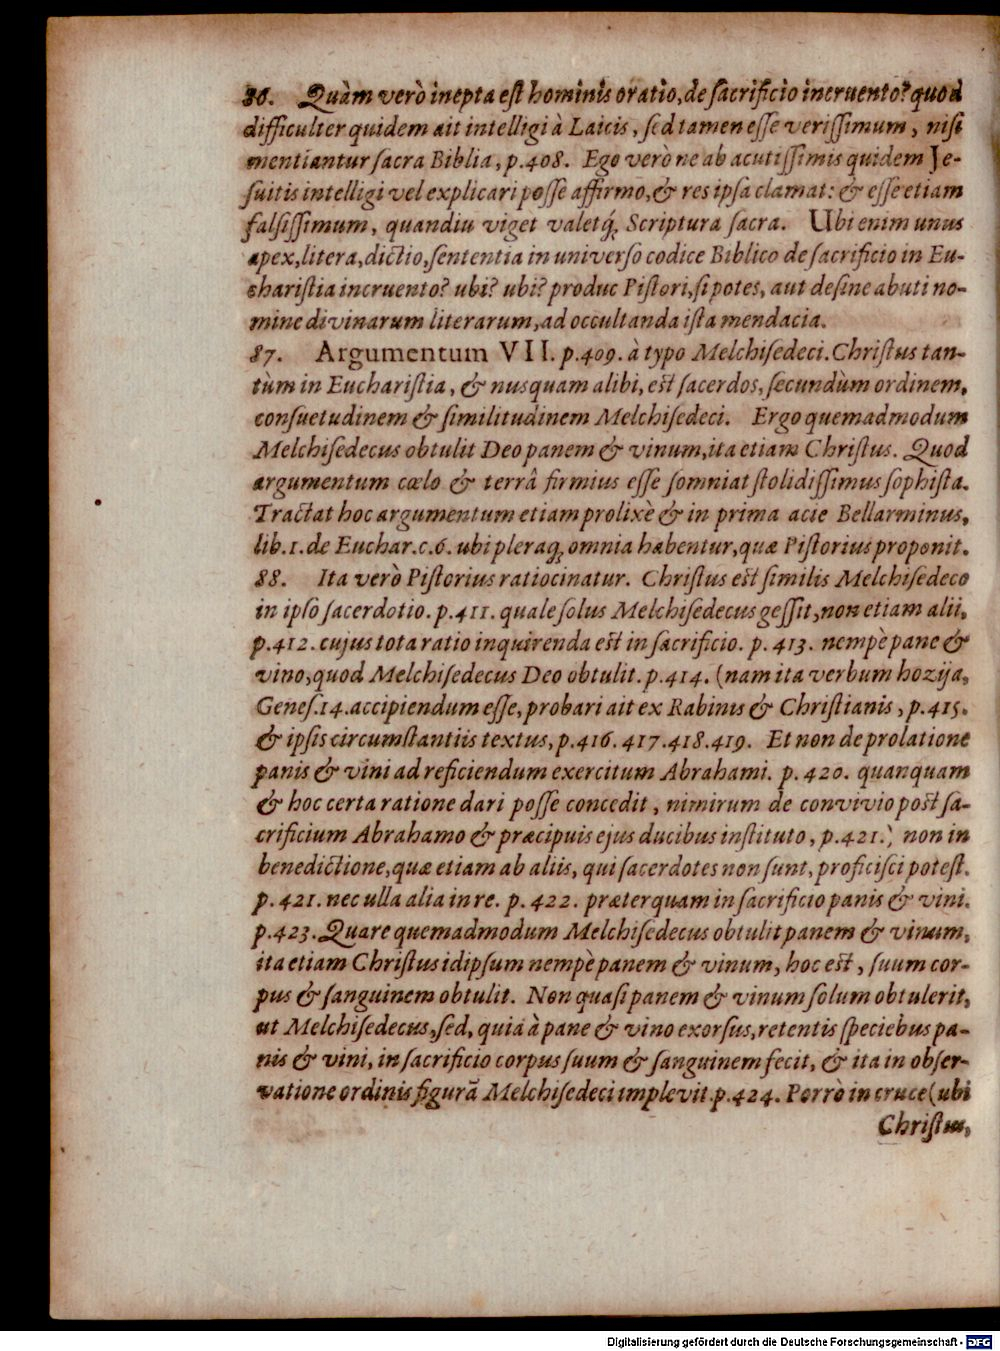 86. Quàm verò inepta eſt hominis oratio, de ſacrificio incruento? quod
difficulter quidem ait intelligi à Laicis, ſed tamen eſſe veriſſimum, niſi
mentiantur ſacra Biblia, p.408. Ego verò ne ab acutiſſimis quidem Je-
ſuitis intelligi vel explicari poſſe affirmo, & res ipſa clamat: & eſſe etiam
falſiſſimum, quandiu viget valetq́; Scriptura ſacra. Ubi enim unus
apex, litera, dictio, ſententia in univerſo codice Biblico de ſacrificio in Eu-
chariſtia incruento? ubi? ubi? produc Piſtori, ſi potes, aut deſine abuti no-
mine divinarum literarum, ad occultanda iſta mendacia.
87. Argumentum VII. p.409. à typo Melchiſedeci. Chriſtus tan-
tùm in Euchariſtia, & nusquam alibi, eſt ſacerdos, ſecundùm ordinem,
conſuetudinem & ſimilitudinem Melchiſedeci. Ergo quemadmodum
Melchiſedecus obtulit Deo panem & vinum, ita etiam Chriſtus. Quod
argumentum cœlo & terrâ firmius eſſe ſomniat ſtolidiſſimus ſophiſta.
Tractat hoc argumentum etiam prolixè & in prima acie Bellarminus,
lib.1. de Euchar. c.6. ubi pleraq; omnia habentur, quæ Piſtorius proponit.
88. Ita verò Piſtorius ratiocinatur. Chriſtus eſt ſimilis Melchiſedeco
in ipſo ſacerdotio. p.411. quale ſolus Melchiſedecus geſſit, non etiam alii,
p.412. cujus tota ratio inquirenda eſt in ſacrificio. p. 413. nempè pane &
vino, quod Melchiſedecus Deo obtulit. p.414. (nam ita verbum hozija,
Geneſ.14. accipiendum eſſe, probari ait ex Rabinis & Chriſtianis, p.415.
& ipſis circumſtantiis textus, p.416. 417.418.419. Et non de prolatione
panis & vini ad reficiendum exercitum Abrahami. p. 420. quanquam
& hoc certa ratione dari poſſe concedit, nimirum de convivio poſt ſa-
crificium Abrahamo & præcipuis ejus ducibus inſtituto, p.421.) non in
benedictione, quæ etiam ab aliis, qui ſacerdotes non ſunt, proficiſci poteſt.
p. 421. nec ulla alia in re. p. 422. præterquam in ſacrificio panis & vini.
p.423. Quare quemadmodum Melchiſedecus obtulit panem & vinum,
ita etiam Chriſtus idipſum nempè panem & vinum, hoc eſt, ſuum cor-
pus & ſanguinem obtulit. Non quaſi panem & vinum ſolum obtulerit,
ut Melchiſedecus, ſed, quia à pane & vino exorſus, retentis ſpeciebus pa-
nis & vini, in ſacrificio corpus ſuum & ſanguinem fecit, & ita in obſer-
vatione ordinis figurã Melchiſedeci implevit. p.424. Porrò in cruce (ubi
Chriſtus,
Digitalisierung gefördert durch die Deutsche Forschungsgemeinschaft - DFG